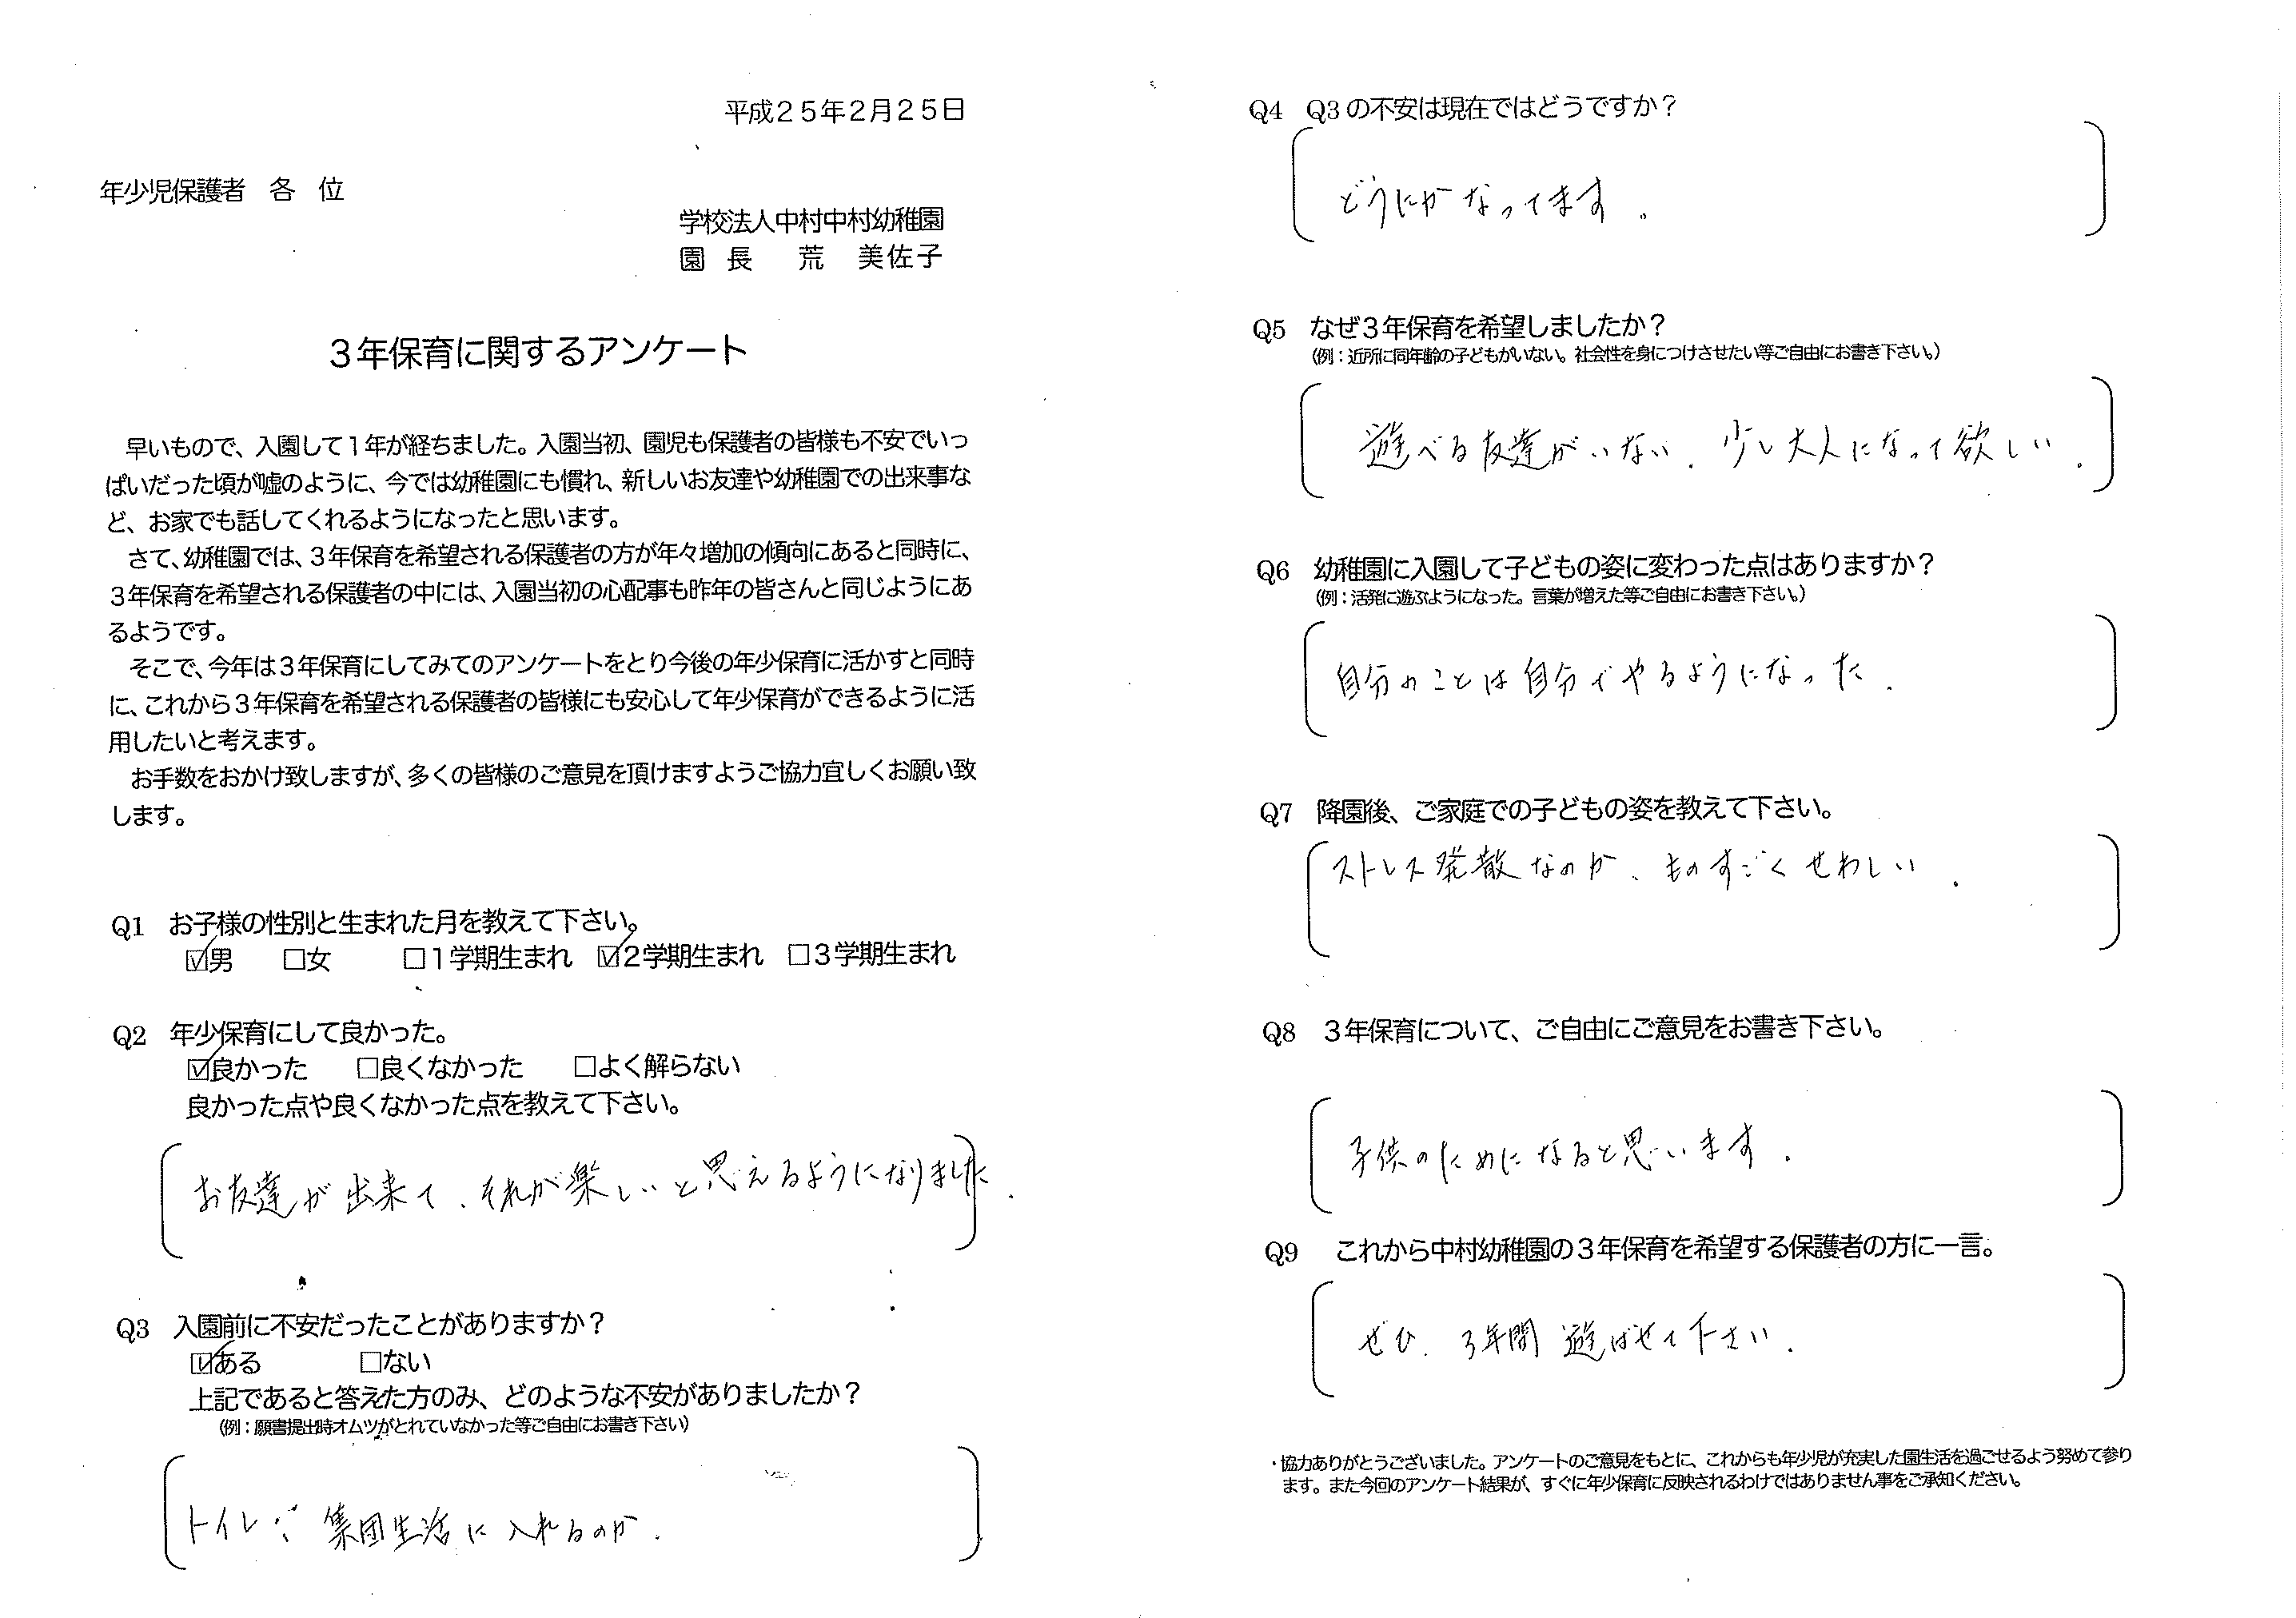 平成25年2月25日
年少児保護者　各　位
学校法人中村中村幼稚園
園　長　　荒　美佐子
3年保育に関するアンケート
早いもので、入園して1年が経ちました。入園当初、園児も保護者の皆様も不安でいっ
ぱいだった頃が嘘のように、今では幼稚園にも慣れ、新しいお友達や幼稚園での出来事な
ど、お家でも話してくれるようになったと思います。
さて、幼稚園では、3年保育を希望される保護者の方が年々増加の傾向にあると同時に、
3年保育を希望される保護者の中には、入園当初の心配事も昨年の皆さんと同じようにあ
るようです。
そこで、今年は3年保育にしてみてのアンケートをとり今後の年少保育に活かすと同時
に、これから3年保育を希望される保護者の皆様にも安心して年少保育ができるように活
用したいと考えます。
お手数をおかけ致しますが、多くの皆様のご意見を頂けますようご協力宜しくお願い致
します。
Q1　お子様の性別と生まれた月を教えて下さい。
☑男　□女　□1学期生まれ　☑2学期生まれ　□3学期生まれ
Q2　年少保育にして良かった。
☑良かった　□良くなかった　□よく解らない
良かった点や良くなかった点を教えて下さい。
お友達が出来て、それが楽しいと思えるようになりました。
Q3　入園前に不安だったことがありますか？
☑ある　□ない
上記であると答えた方のみ、どのような不安がありましたか？
(例：願書提出時オムツがとれていなかった等ご自由にお書き下さい)
トイレ　集団生活に入れるのか。
Q4　Q3の不安は現在ではどうですか？
どうにかなってます。
Q5　なぜ3年保育を希望しましたか？
(例：近所に同年齢の子どもがいない。社会性を身につけさせたい等ご自由にお書き下さい。)
遊べる友達がいない。少し大人になって欲しい。
Q6　幼稚園に入園して子どもの姿に変わった点はありますか？
(例：活発に遊ぶようになった。言葉が増えた等ご自由にお書き下さい。)
自分のことは自分でやるようになった。
Q7　降園後、ご家庭での子どもの姿を教えて下さい。
ストレス発散なのか、ものすごくせわしい。
Q8　3年保育について、ご自由にご意見をお書き下さい。
子供のためになると思います。
Q9　これから中村幼稚園の3年保育を希望する保護者の方に一言。
ぜひ、3年間遊ばせて下さい。
・協力ありがとうございました。アンケートのご意見をもとに、これからも年少児が充実した園生活を過ごせるよう努めて参り
ます。また今回のアンケート結果が、すぐに年少保育に反映されるわけではありません事をご承知ください。